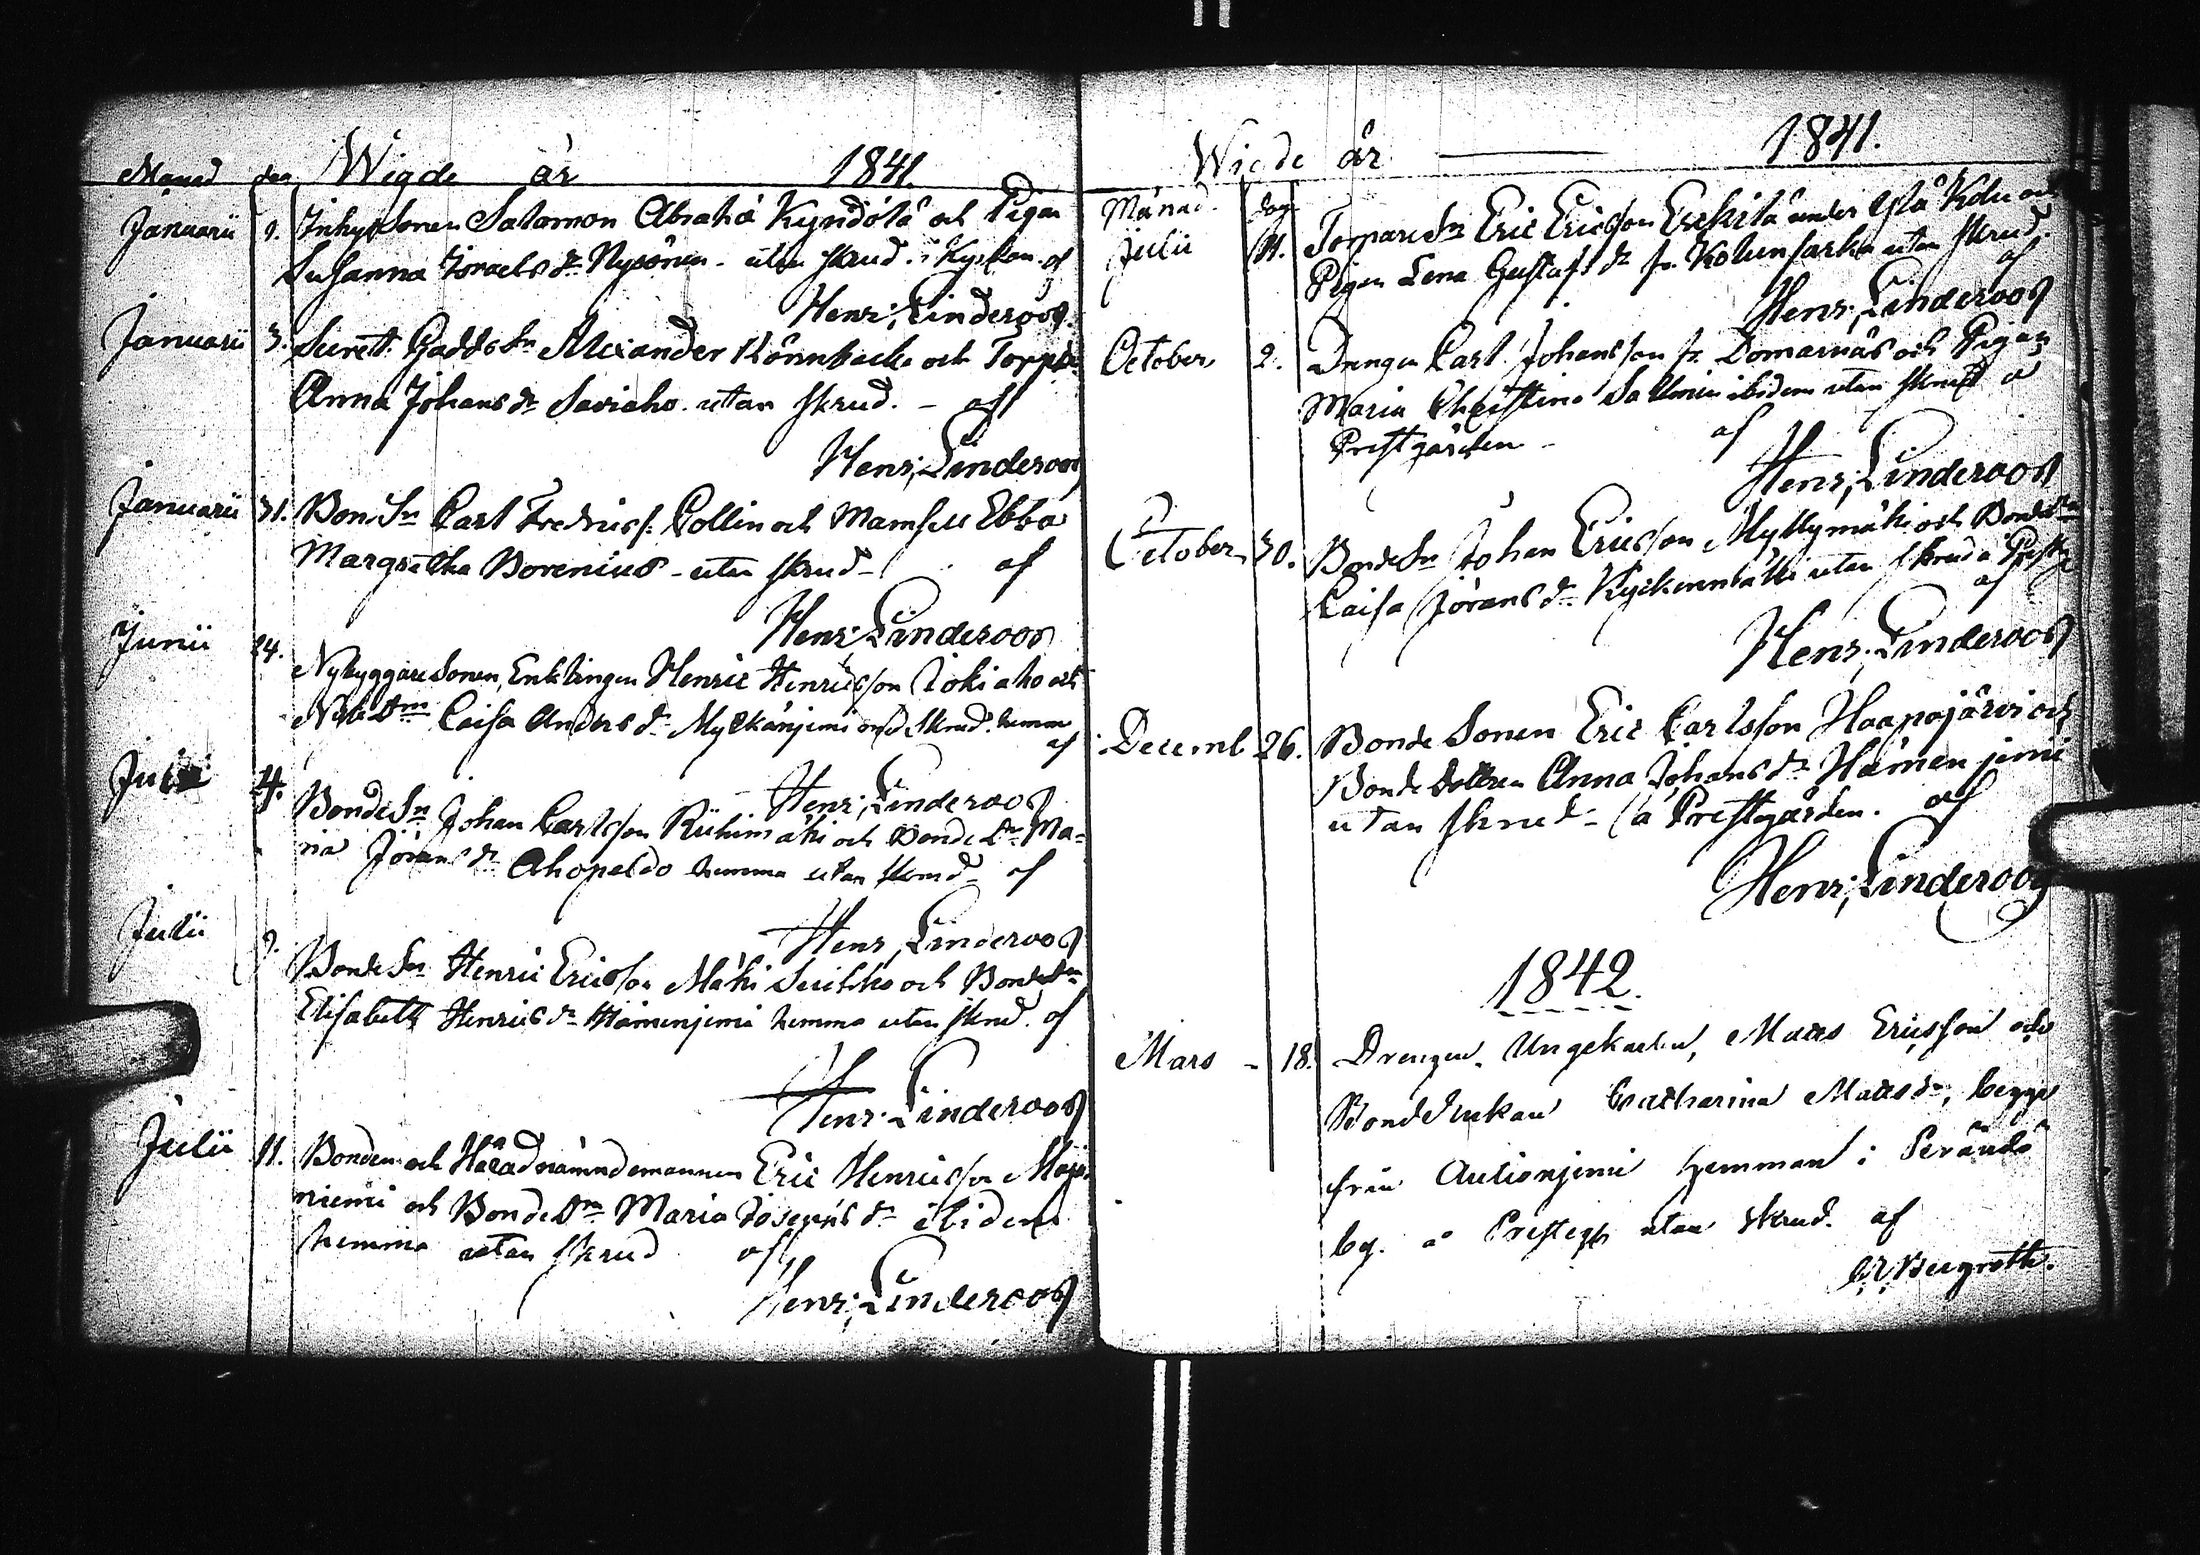 Månad dag Wigde år 1841.
Januarii 1. Inhys Sonen Salomon Abrahā Kyndölä och Pigan
Susanna Israels dr Nysönen - utan skrud. i Kyrkan. af
Henr: Linderoos.
Januarii 3. Gadds Sn Alexander Rönnbacke och
Anna Johans dr Saviaho. utan skrud. - af
Henr: Linderoos
Januarii 31. Bonde Sn Carl Fredricss. Collin och Mamsell Ebba
Margretha Borenius - utan skrud - af
Henr: Linderoos
Junii 24. Nybyggare Sonen, Enklingen Henric Henricsson Jokiaho och
Caisa Anders dr Mylkänjemi skrud. hemma
af
Henr: Linderoos
4. Bonde Sn Johan Carlsson Riihimäki och Bonde Dr Ma-
ria Jörans dr Ahopeldo hemma utan skrud - af
Henr: Linderoos
Julii Bonde Sn Henric Ericsson Mäki och Bonde Dn
Elisabeth Henrics dr Hämenjemi hemma utan skrud. af
Henr: Linderoos
Julii 11. Bonden och Häradsnämndemannen Eric Henricsson
niemi och Bonde Dn Maria Josephs dr ibidem
hemma utan skrud af
Henr: Linderoos
Wigde år 1841.
Månad. dag
Julii 11. Torpare Sn Eric Ericsson Erkilä under Kolu och
Pigan Lena Gustafs dr fr. Kolunsarka utan skrud.
af
Henr: Linderoos
October 2. Drengen Carl Johansson fr. Domarnäs och Pigan
Maria Christina Sallmin ibidem utan skrud å
Prestgården - af
Henr: Linderoos
October 30. Bonde Sn Johan Ericsson Myllymäki och Bonde Dn
Caisa Jörans dr utan skrud å
af
Henr: Linderoos
Decemb 26. Bonde Sonen Eric Carlsson Haapajärvi och
Bonde dottren Anna Johans dr Hämenjemi
utan skrud - å Prestgården. af
Henr: Linderoos
1842.
Mars - 18. Drengen, Ungekarlen, Matts Ericsson och
Bonde Enkan Catharina Matts dr, begge
från Autionjemi hemman i Peränds
by. å utan skrud. af
Bergroth.